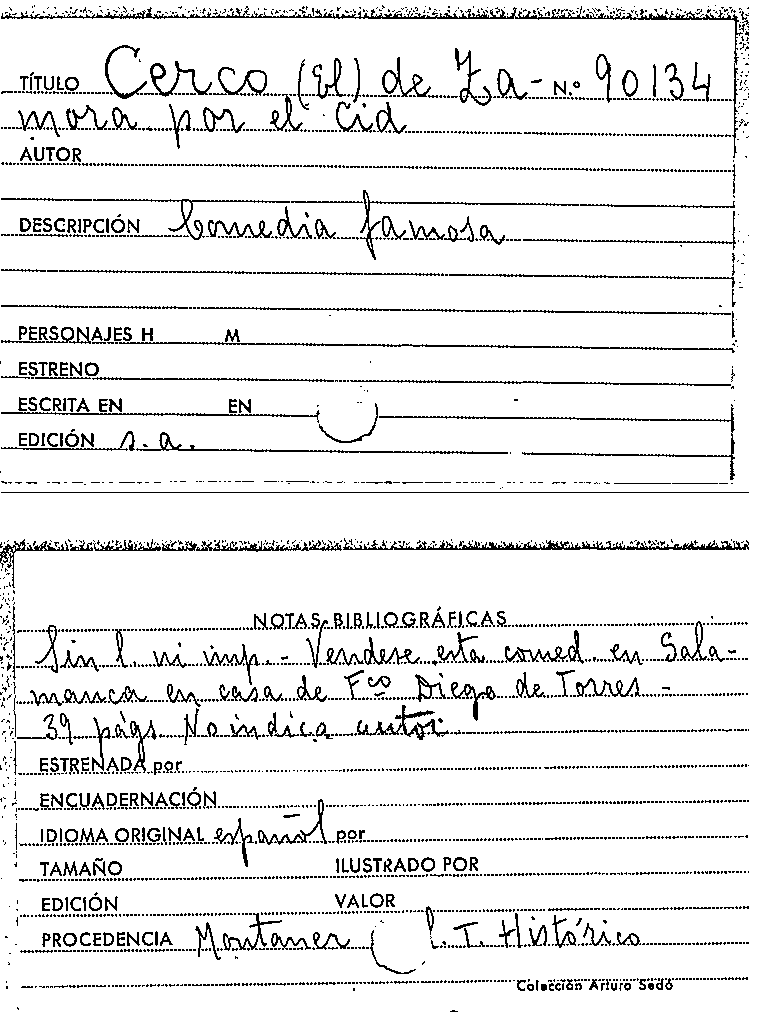 TÍTULO Cerco (El) de Za- N.º 90134
mora por el Cid
AUTOR
DESCRIPCIÓN Comedia famosa
PERSONAJES H M
ESTRENO
ESCRITA EN EN
EDICIÓN s.a.
NOTAS BIBLIOGRÁFICAS
Sin l. ni imp. - Vendese esta comed. en Sala-
manca en casa de Fco Diego de Torres -
39 págs. No indica autor.
ESTRENADA por
ENCUADERNACIÓN
IDIOMA ORIGINAL español por
TAMAÑO ILUSTRADO POR
EDICIÓN VALOR
PROCEDENCIA Montaner C. T. Histórico
Colección Arturo Sedó